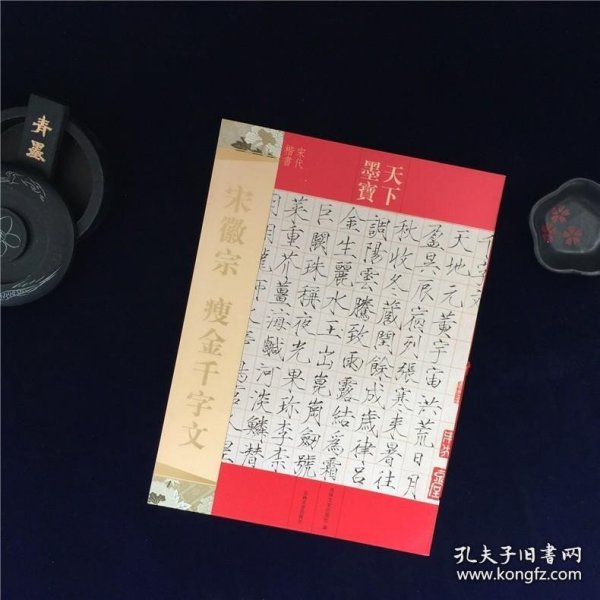 青墨
宋代
楷書
天下
墨寶
宋徽宗 瘦金千字文
千字文
天地元黄宇宙洪荒日月
盈昃辰宿列張寒來暑往
秋收冬蔵閏餘成歳律吕
調陽雲騰致雨露結爲霜
金生麗水玉出崑崗劒號
巨闕珠稱夜光果珎李柰
菜重芥薑海鹹河淡鱗潜
孔夫子旧書网
www.kongfz.com